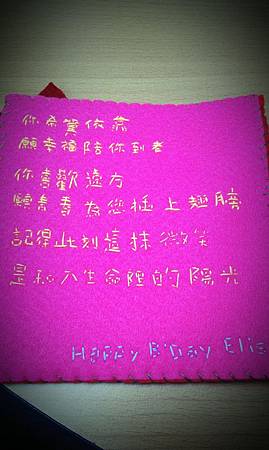 你希冀依靠
願幸福陪你到老
你喜歡遠方
願青春為您插上翅膀
記得此刻這抹微笑
是和入生命裡的陽光
Happy B'Day Elis